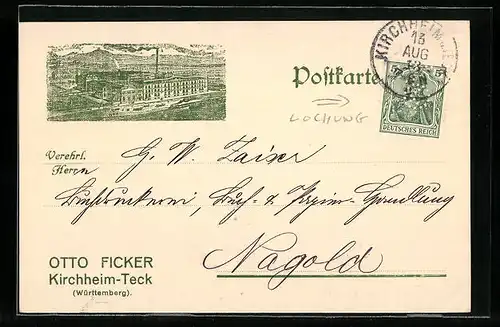 KIRCHHEIM
13
AUG
Postkarte
5
5
DEUTSCHES REICH
LOCHUNG
Verehrl.
Herrn
G. W. Zaiser
Buchdruckerei, Buch- & Papier-Handlung
Nagold
OTTO FICKER
Kirchheim-Teck
(Württemberg).